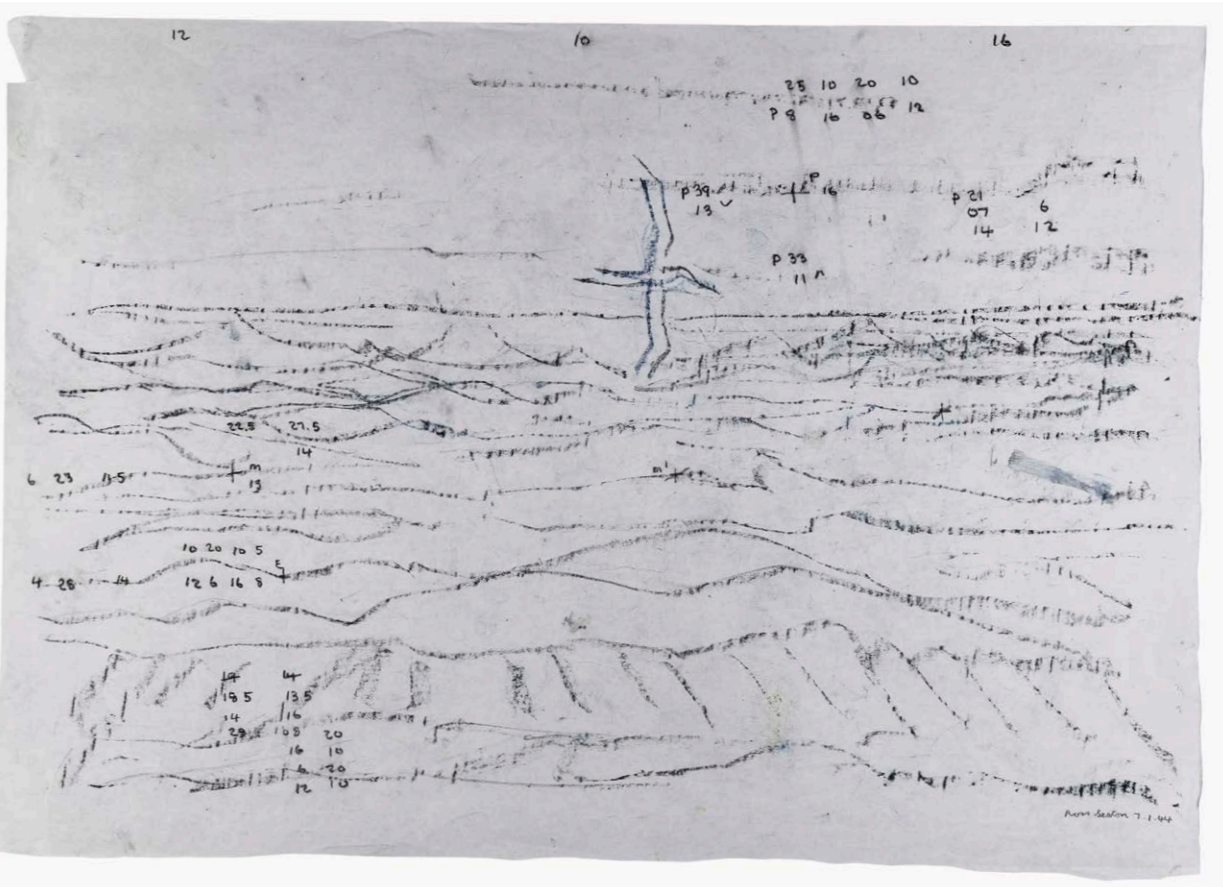 12 10 16
25 10 20 10
P 8 16 06 12
P 39 P 16
13
P 21
07 6
14 12
P 33
11
22.5 27.5
14
6 23 11.5 m
19
m'
10 20 10 5
4 28 14 12 6 16 8
19 14
18 5 13 5
14 16
28 10 8 20
16 10
6 20
12 10
7.1.44